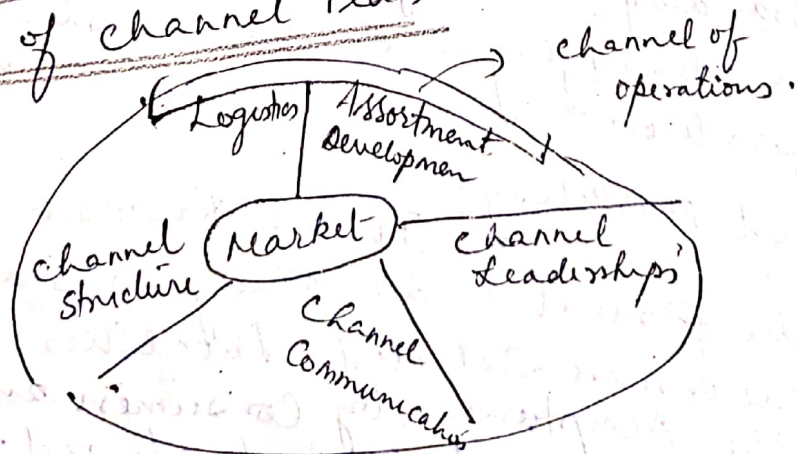 of channel
channel of
operations.
Logistics
Assortment
Developmen
Market
Channel
Structure
Channel
Leaderships
Channel
Communication